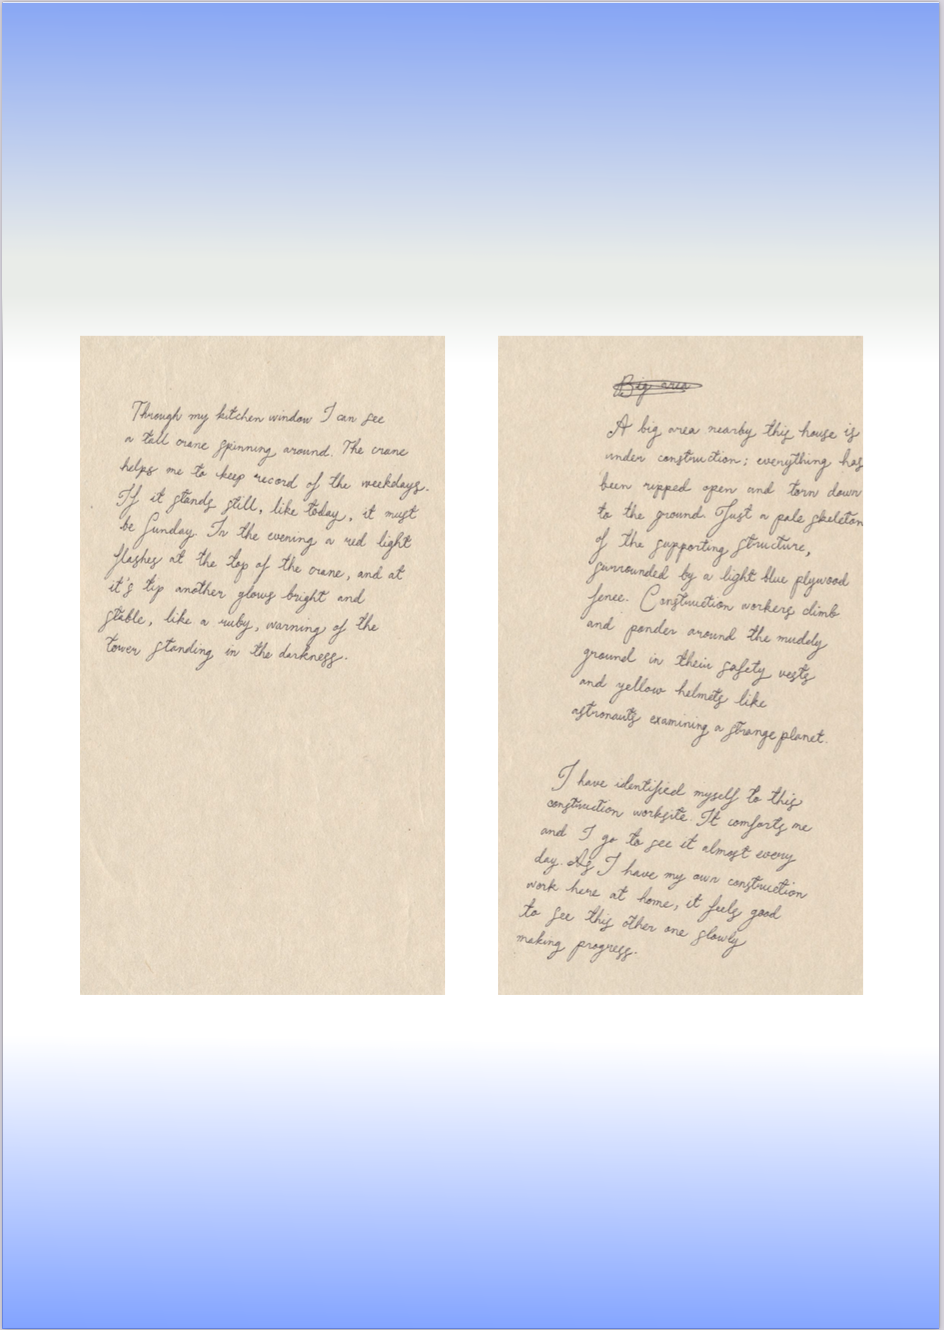 Through my kitchen window I can see
a tall crane spinning around. The crane
helps me to keep record of the weekdays.
If it stands still, like today, it must
be Sunday. In the evening a red light
flashes at the top of the crane, and at
it's tip another glows bright and
stable, like a ruby, warning of the
tower standing in the darkness.
Big area
A big area nearby this house is
under construction; everything has
been ripped open and torn down
to the ground. Just a pale skeleton
of the supporting structure,
surrounded by a light blue plywood
fence. Construction workers climb
and ponder around the muddy
ground in their safety vests
and yellow helmets like
astronauts examining a strange planet.
I have identified myself to this
construction worksite. It comforts me
and I go to see it almost every
day. As I have my own construction
work here at home, it feels good
to see this other one slowly
making progress.